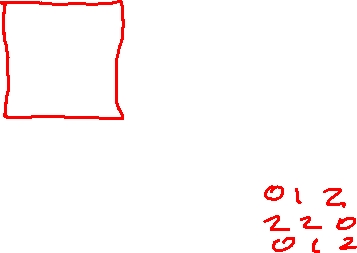 0 1 2
2 2 0
0 1 2